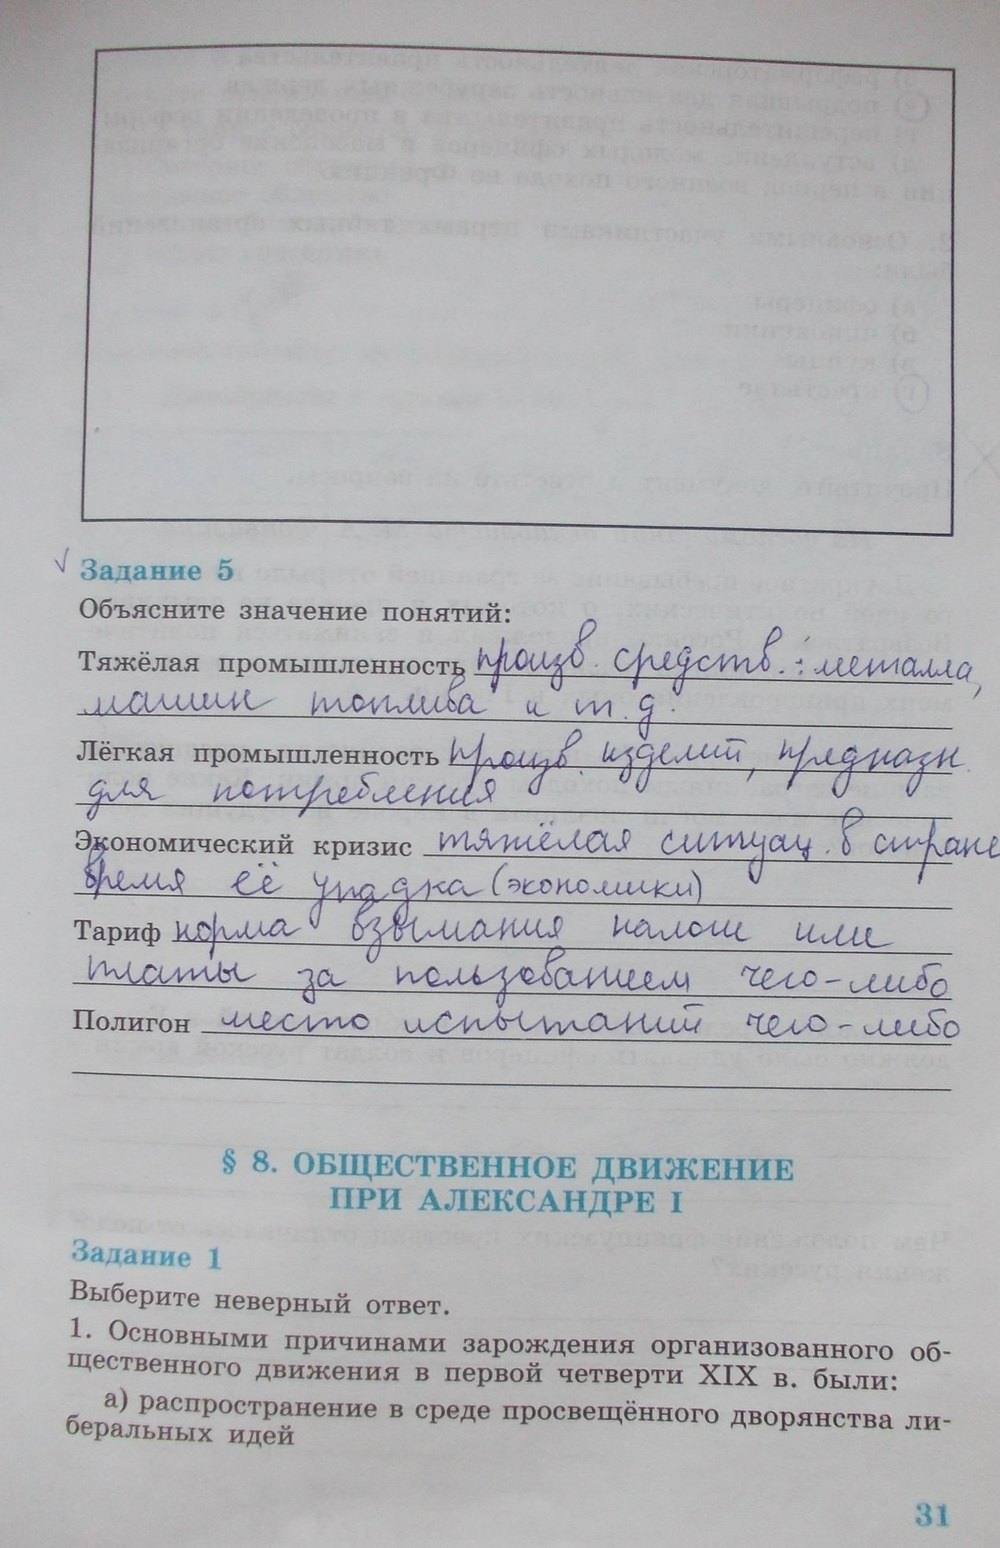 Задание 5
Объясните значение понятий:
Тяжёлая промышленность произв. средств.: металла,
машин топлива и т.д.
Лёгкая промышленность произв. изделий, предназн.
для потребления
Экономический кризис тяжёлая ситуац. в стране
время её упадка (экономики)
Тариф норма взымания налога или
платы за пользованием чего-либо
Полигон место испытаний чего-либо
§ 8. ОБЩЕСТВЕННОЕ ДВИЖЕНИЕ
ПРИ АЛЕКСАНДРЕ I
Задание 1
Выберите неверный ответ.
1. Основными причинами зарождения организованного об-
щественного движения в первой четверти XIX в. были:
а) распространение в среде просвещённого дворянства ли-
беральных идей
31